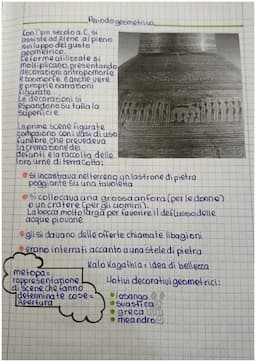 Periodo geometrico
Con l'VIII secolo a.C. si
assiste ad Atene al pieno
sviluppo del gusto
geometrico.
Le forme utilizzate si
moltiplicano, presentando
decorazioni antropomorfe
e zoomorfe. E anche vere
e proprie narrazioni
figurate.
Le decorazioni si
espandono su tutta la
superficie.
Le prime scene figurate
compaiono con i vasi di uso
funebre, che prevedeva
la cremazione dei
defunti e la raccolta delle
loro urne di terracotta:
si incastrava nel terreno un lastrone di pietra
poggiante su una tavoletta
si collocava una grossa anfora (per le donne)
o un cratere (per gli uomini).
La bocca molto larga per favorire il deflusso delle
acque piovane
gli si davano delle offerte chiamate libagioni
erano interrati accanto a una stele di pietra
Kalo Kagathia = idea di bellezza
metopa =
rappresentazione
di scene che fanno
determinate cose =
Apertura
Motivi decorativi geometrici:
losanga
svastica
greca
meandro